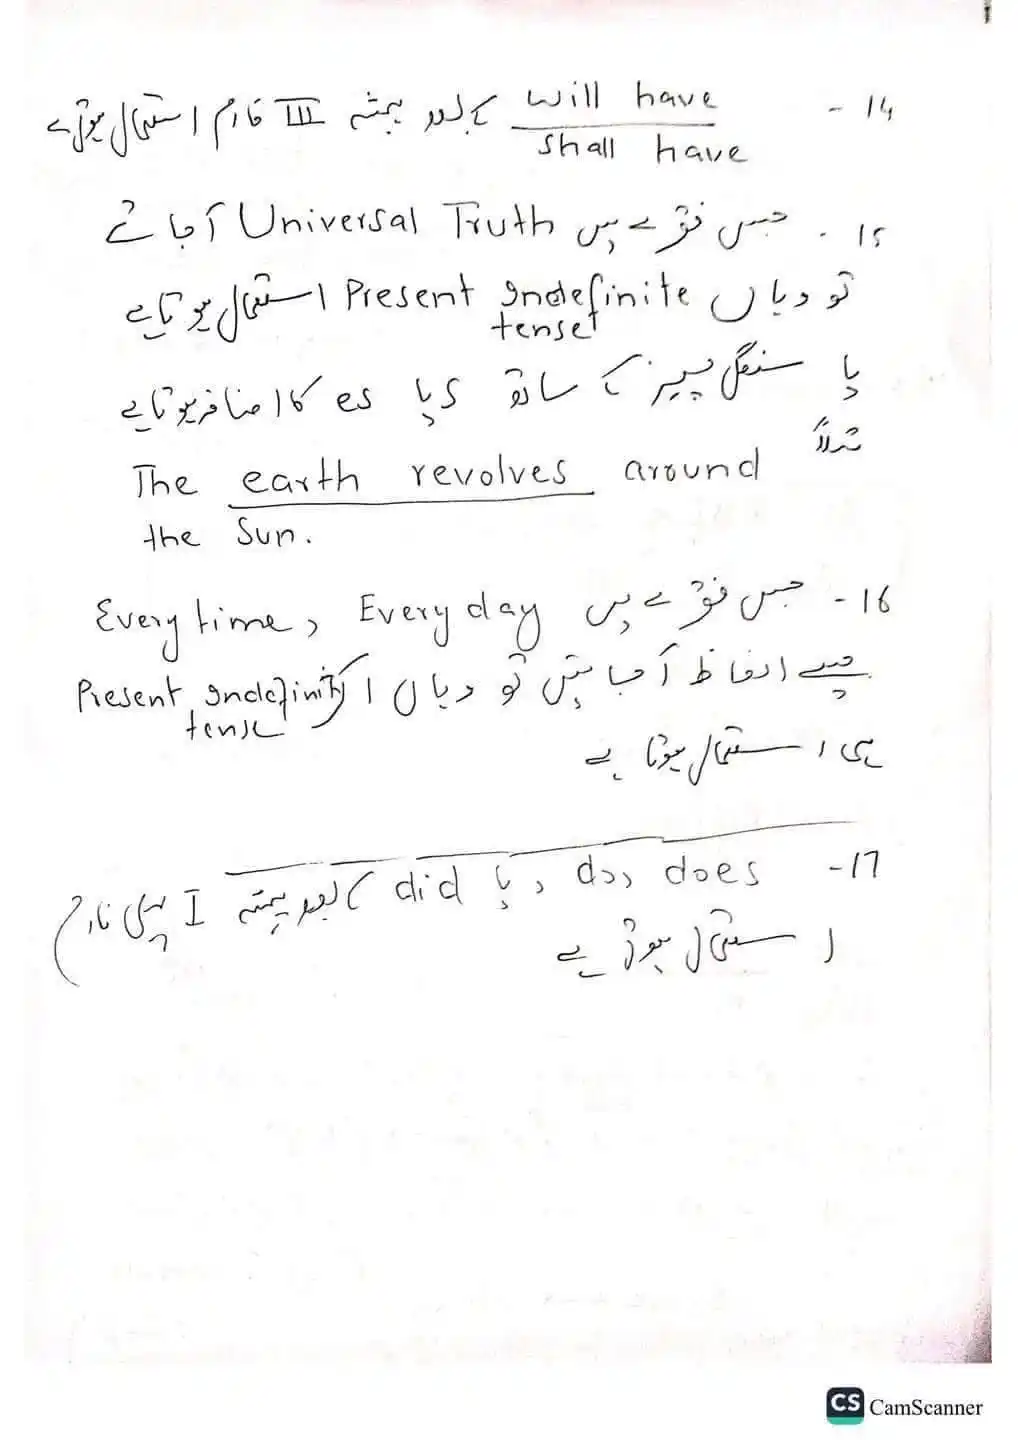 14- will have کے بعد ہمیشہ III فارم استعمال ہوتی ہے
shall have
15. جس فقرے میں Universal Truth آجائے
تو وہاں Present Indefinite استعمال ہوتا ہے
tense
یا سنگل کے ساتھ s یا es کا اضافہ ہوتا ہے
مثلاً
The earth revolves around
the Sun.
16- جس فقرے میں Every day , Every time
جیسے الفاظ آجائیں تو وہاں اکثر Present Indefinite
tense
ہی استعمال ہوتا ہے
17- does , do , یا did کے بعد ہمیشہ I پہلی فارم
استعمال ہوتی ہے
CS CamScanner